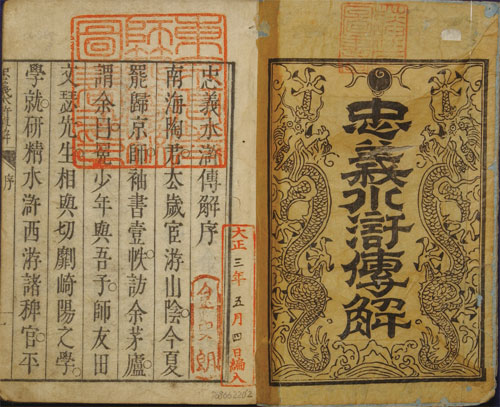 忠義水滸傳解
大正三年五月四日編入
忠義水滸傳解序
南海陶君厺歲宦游山陰今夏
罷歸京師袖書壹帙訪余茅廬
謂余曰冕少年與吾子師友田
文瑟先生相與切劘崎陽之學
學就研精水滸西游諸稗官平
序